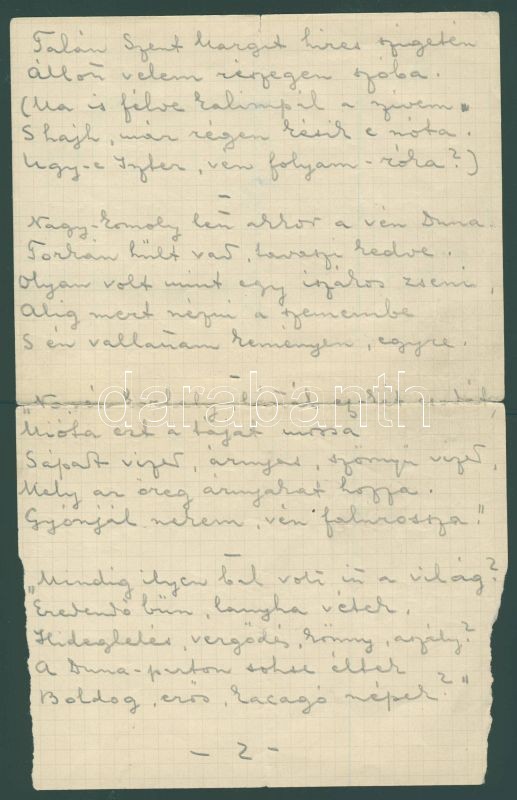 Talán Szent Margit hires szigetén
Állott velem részegen szóba.
(Ma is félve kalimpál a szivem.
S hajh, már régen késik e nóta.
Ugy-e Iszter, vén folyam-róka?)
–
Nagy-komoly lett akkor a vén Duna.
Torkán hült vad, tavaszi kedve.
Olyan volt mint egy iszákos zseni,
Alig mert nézni a szemembe
S én vallattam keményen, egyre.
–
darabanth
Mióta ezt a tájat mossa
Sápadt vized, árnyas, szörnyü vized,
Mely az öreg árnyakat hozza.
Gyónjál nekem, vén falurossza."
–
"Mindig ilyen bal volt itt a világ?
Eredendő bün, lanyha vétek,
Hideglelés, vergődés, könny, aszály?
A Duna-parton sohse éltek
Boldog, erős, kacagó népek?"
– 2 –